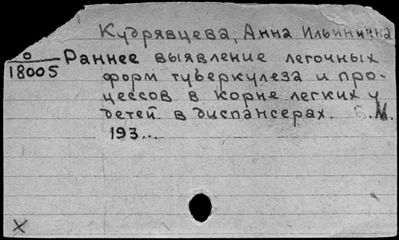 Кудрявцева, Анна Ильинична
о
18005
Раннее выявление легочных
форм туберкулеза и про-
цессов в корне легких у
детей в диспансерах. Б. М.
193...
х